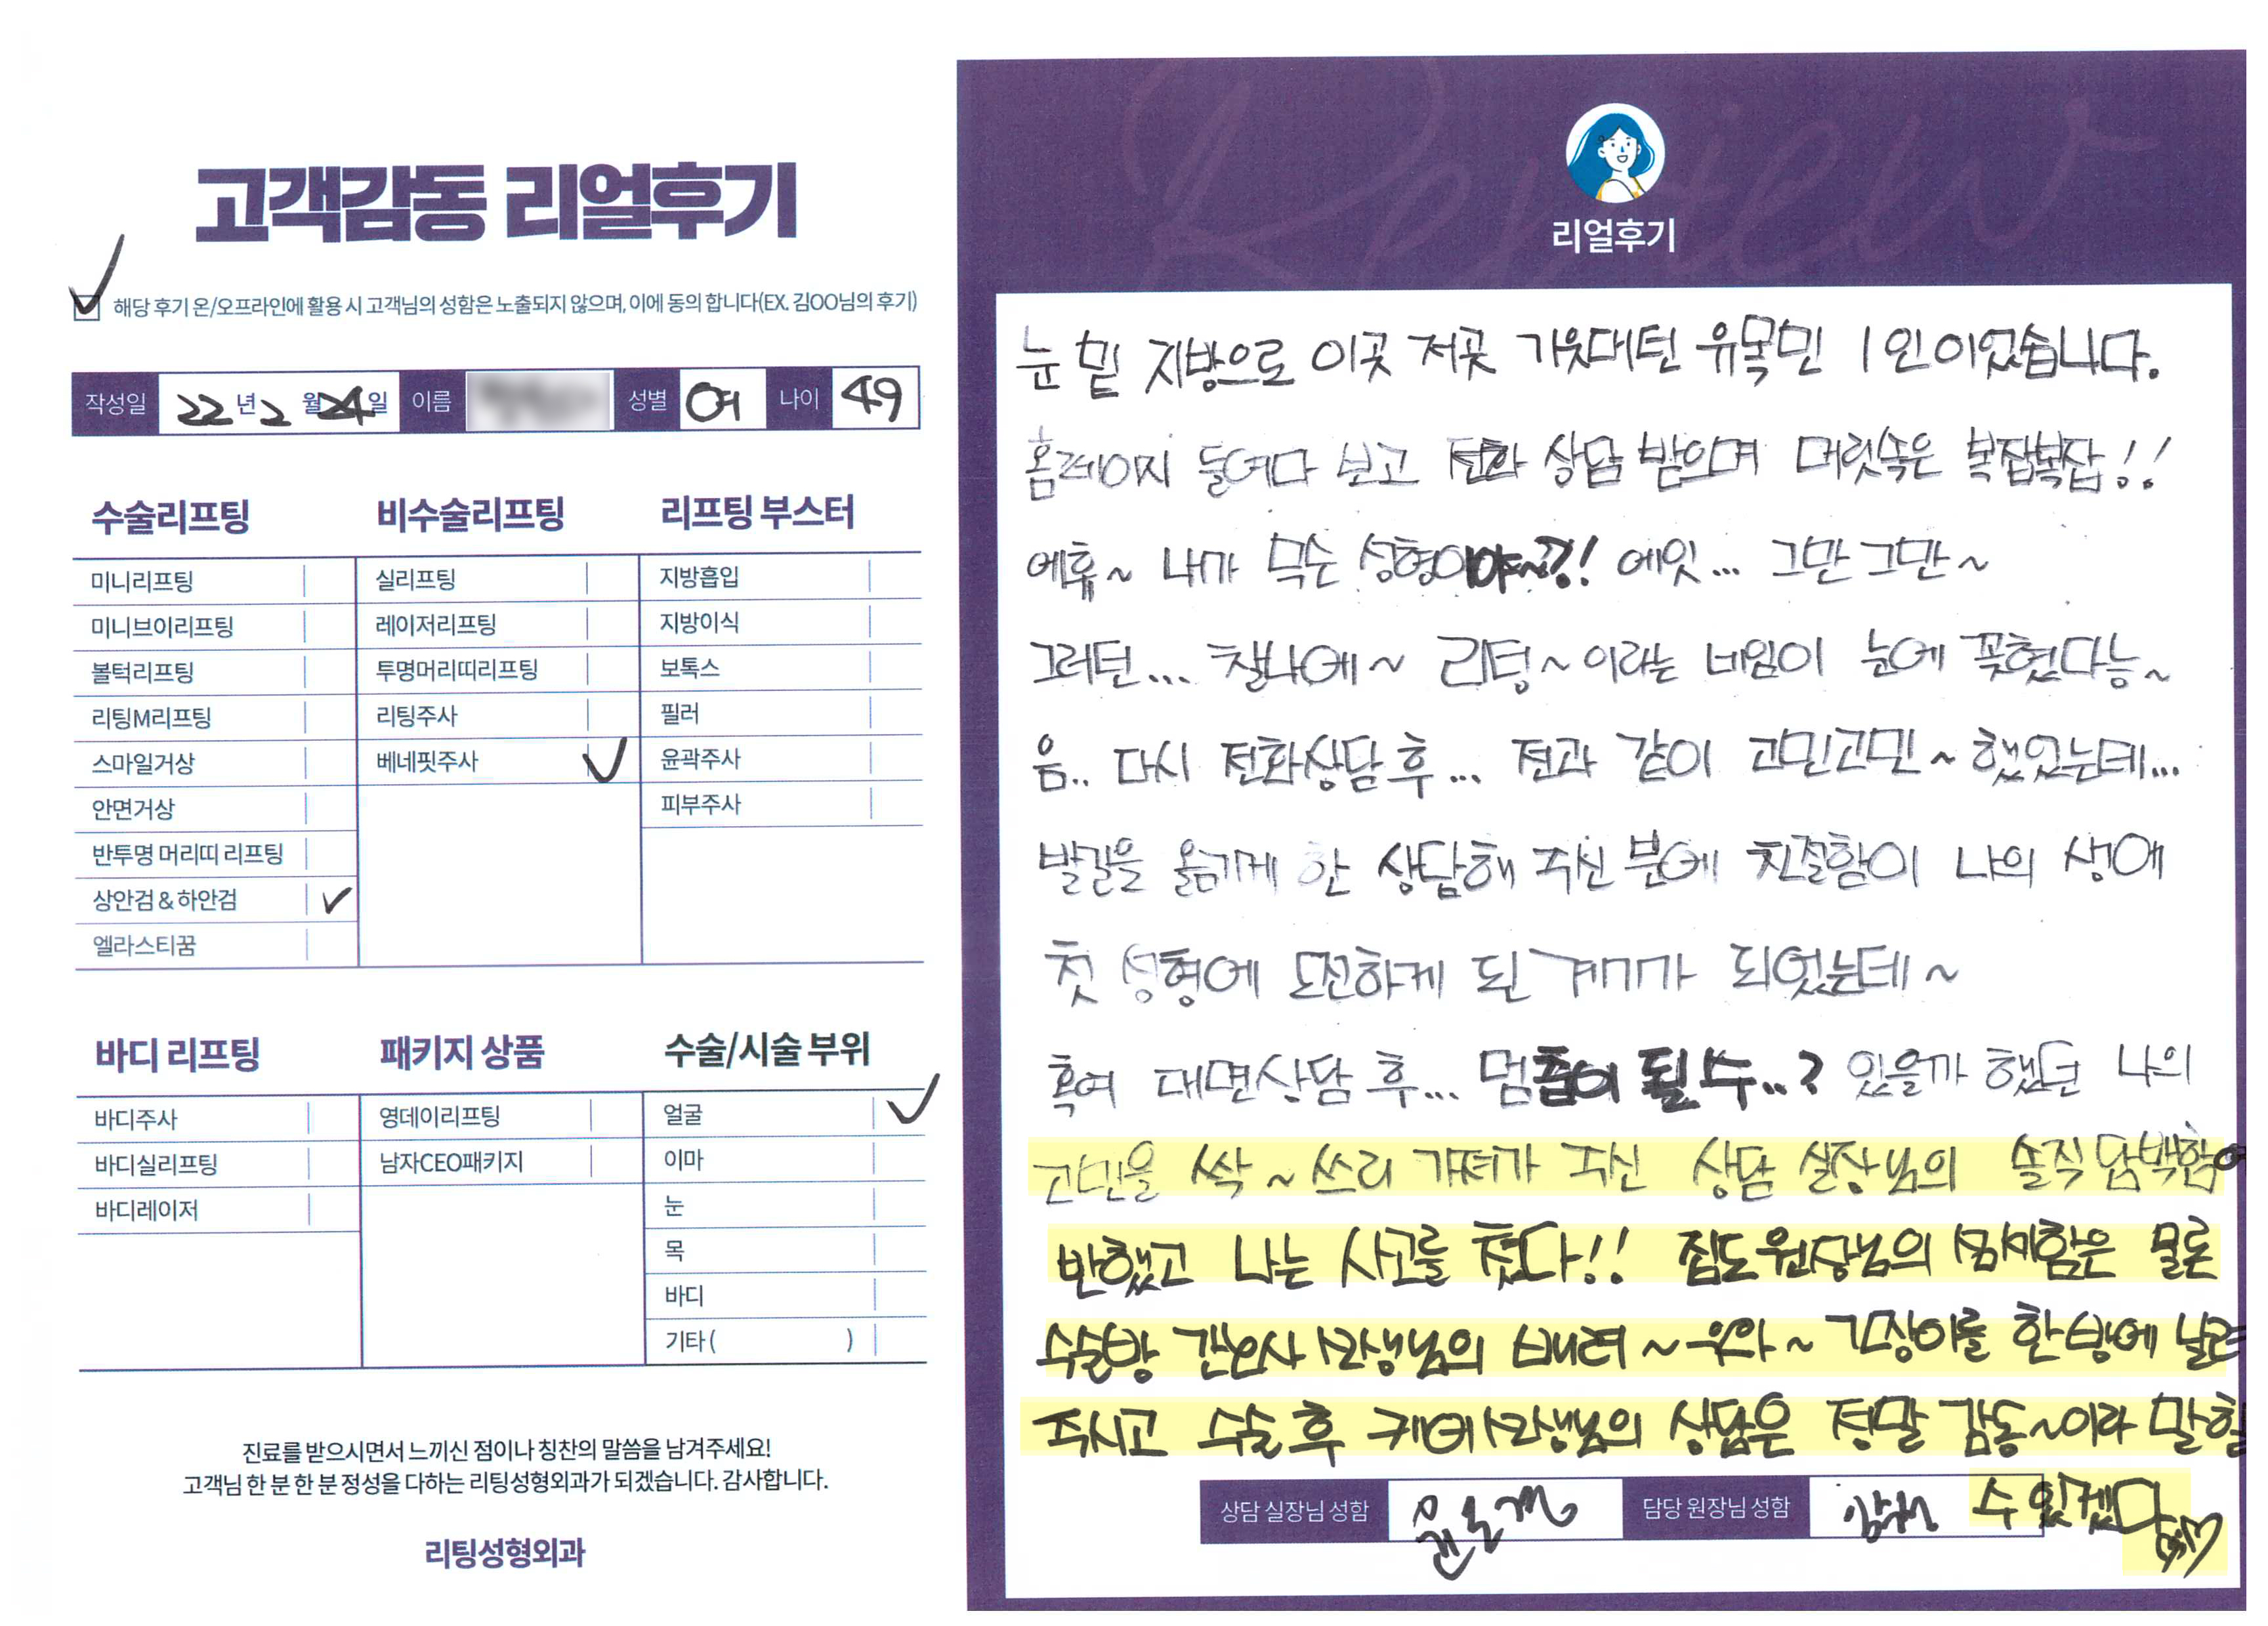 고객감동 리얼후기
해당 후기 온/오프라인에 활용 시 고객님의 성함은 노출되지 않으며, 이에 동의 합니다(EX. 김OO님의 후기)
작성일 22년 2월 24일 이름 성별 여 나이 49
수술리프팅
미니리프팅
미니브이리프팅
볼턱리프팅
리팅M리프팅
스마일거상
안면거상
반투명 머리띠 리프팅
상안검 & 하안검
엘라스티꿈
비수술리프팅
실리프팅
레이저리프팅
투명머리띠리프팅
리팅주사
베네핏주사
리프팅 부스터
지방흡입
지방이식
보톡스
필러
윤곽주사
피부주사
바디 리프팅
바디주사
바디실리프팅
바디레이저
패키지 상품
영데이리프팅
남자CEO패키지
수술/시술 부위
얼굴
이마
눈
목
바디
기타 ( )
진료를 받으시면서 느끼신 점이나 칭찬의 말씀을 남겨주세요!
고객님 한 분 한 분 정성을 다하는 리팅성형외과가 되겠습니다. 감사합니다.
리팅성형외과
Review
리얼후기
눈 밑 지방으로 이곳 저곳 기웃대던 유목민 1인이었습니다.
홈페이지 들여다 보고 전화 상담 받으며 머릿속은 복잡복잡!!
에휴~ 내가 무슨 성형이야~?! 에잇... 그만 그만~
그러던... 찰나에~ 리팅~이라는 네임이 눈에 꽂혔다능~
음.. 다시 전화상담 후... 전과 같이 고민고민~했었는데...
발길을 옮기게 한 상담해 주신 분에 친절함이 나의 생애
첫 성형에 도전하게 된 계기가 되었는데~
혹여 대면상담 후... 멈춤이 될 수..? 있을까 했던 나의
고민을 싹~쓰리 가져가 주신 상담 실장님의 솔직 담백함에
반했고 나는 사고를 쳤다!! 집도 원장님의 섬세함은 물론
수술방 간호사 선생님의 배려~우와~ 긴장이를 한방에 날려
주시고 수술 후 케어 선생님의 상담은 정말 감동~이라 말할
수 있겠다
상담 실장님 성함
담당 원장님 성함